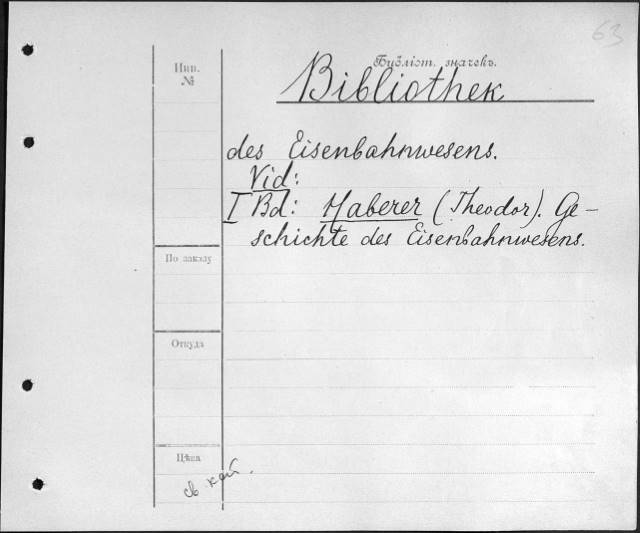 63
Инв.
№
Бубліот. значекъ.
Bibliothek
des Eisenbahnwesens.
Vid:
I Bd: Haberer (Theodor). Ge-
schichte des Eisenbahnwesens.
По заказу
Откуда
Цѣна
св кат.